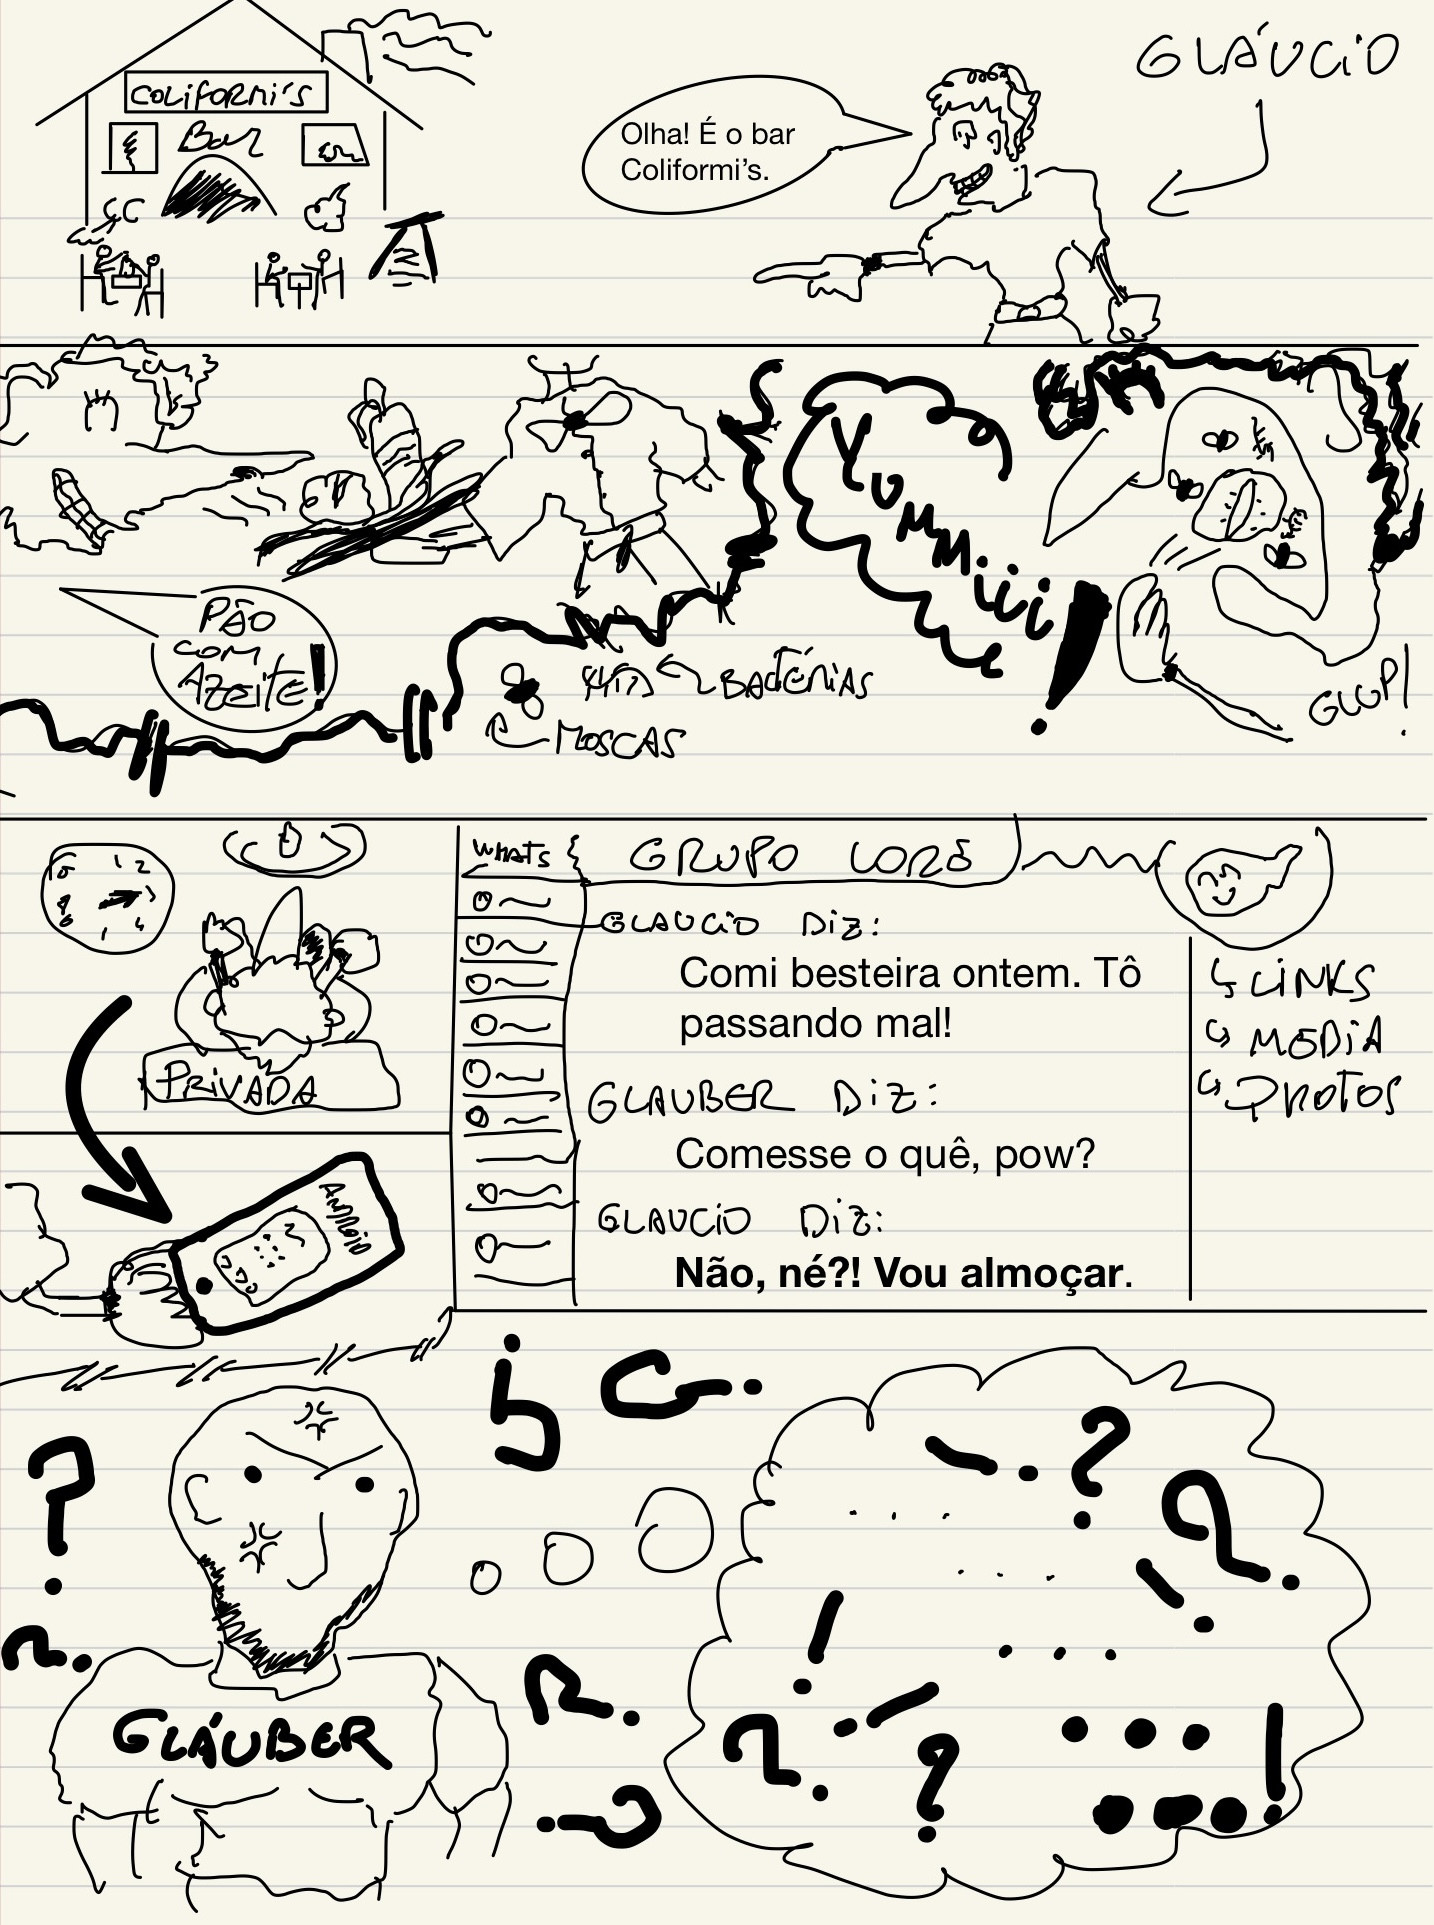 COLIFORMI'S
Bar
Olha! É o bar
Coliformi's.
GLÁUCIO
PÃO
COM
AZEITE!
BACTÉRIAS
MOSCAS
YUMMiiii!
GLUP!
PRIVADA
ANDROID
WHATS
GRUPO LORE
GLAUCIO DIZ:
Comi besteira ontem. Tô
passando mal!
GLAUBER DIZ:
Comesse o quê, pow?
GLAUCIO DIZ:
Não, né?! Vou almoçar.
LINKS
MEDIA
PHOTOS
GLÁUBER
? ? ? ?
- . ?
. . . .
! ? ?
. . . !